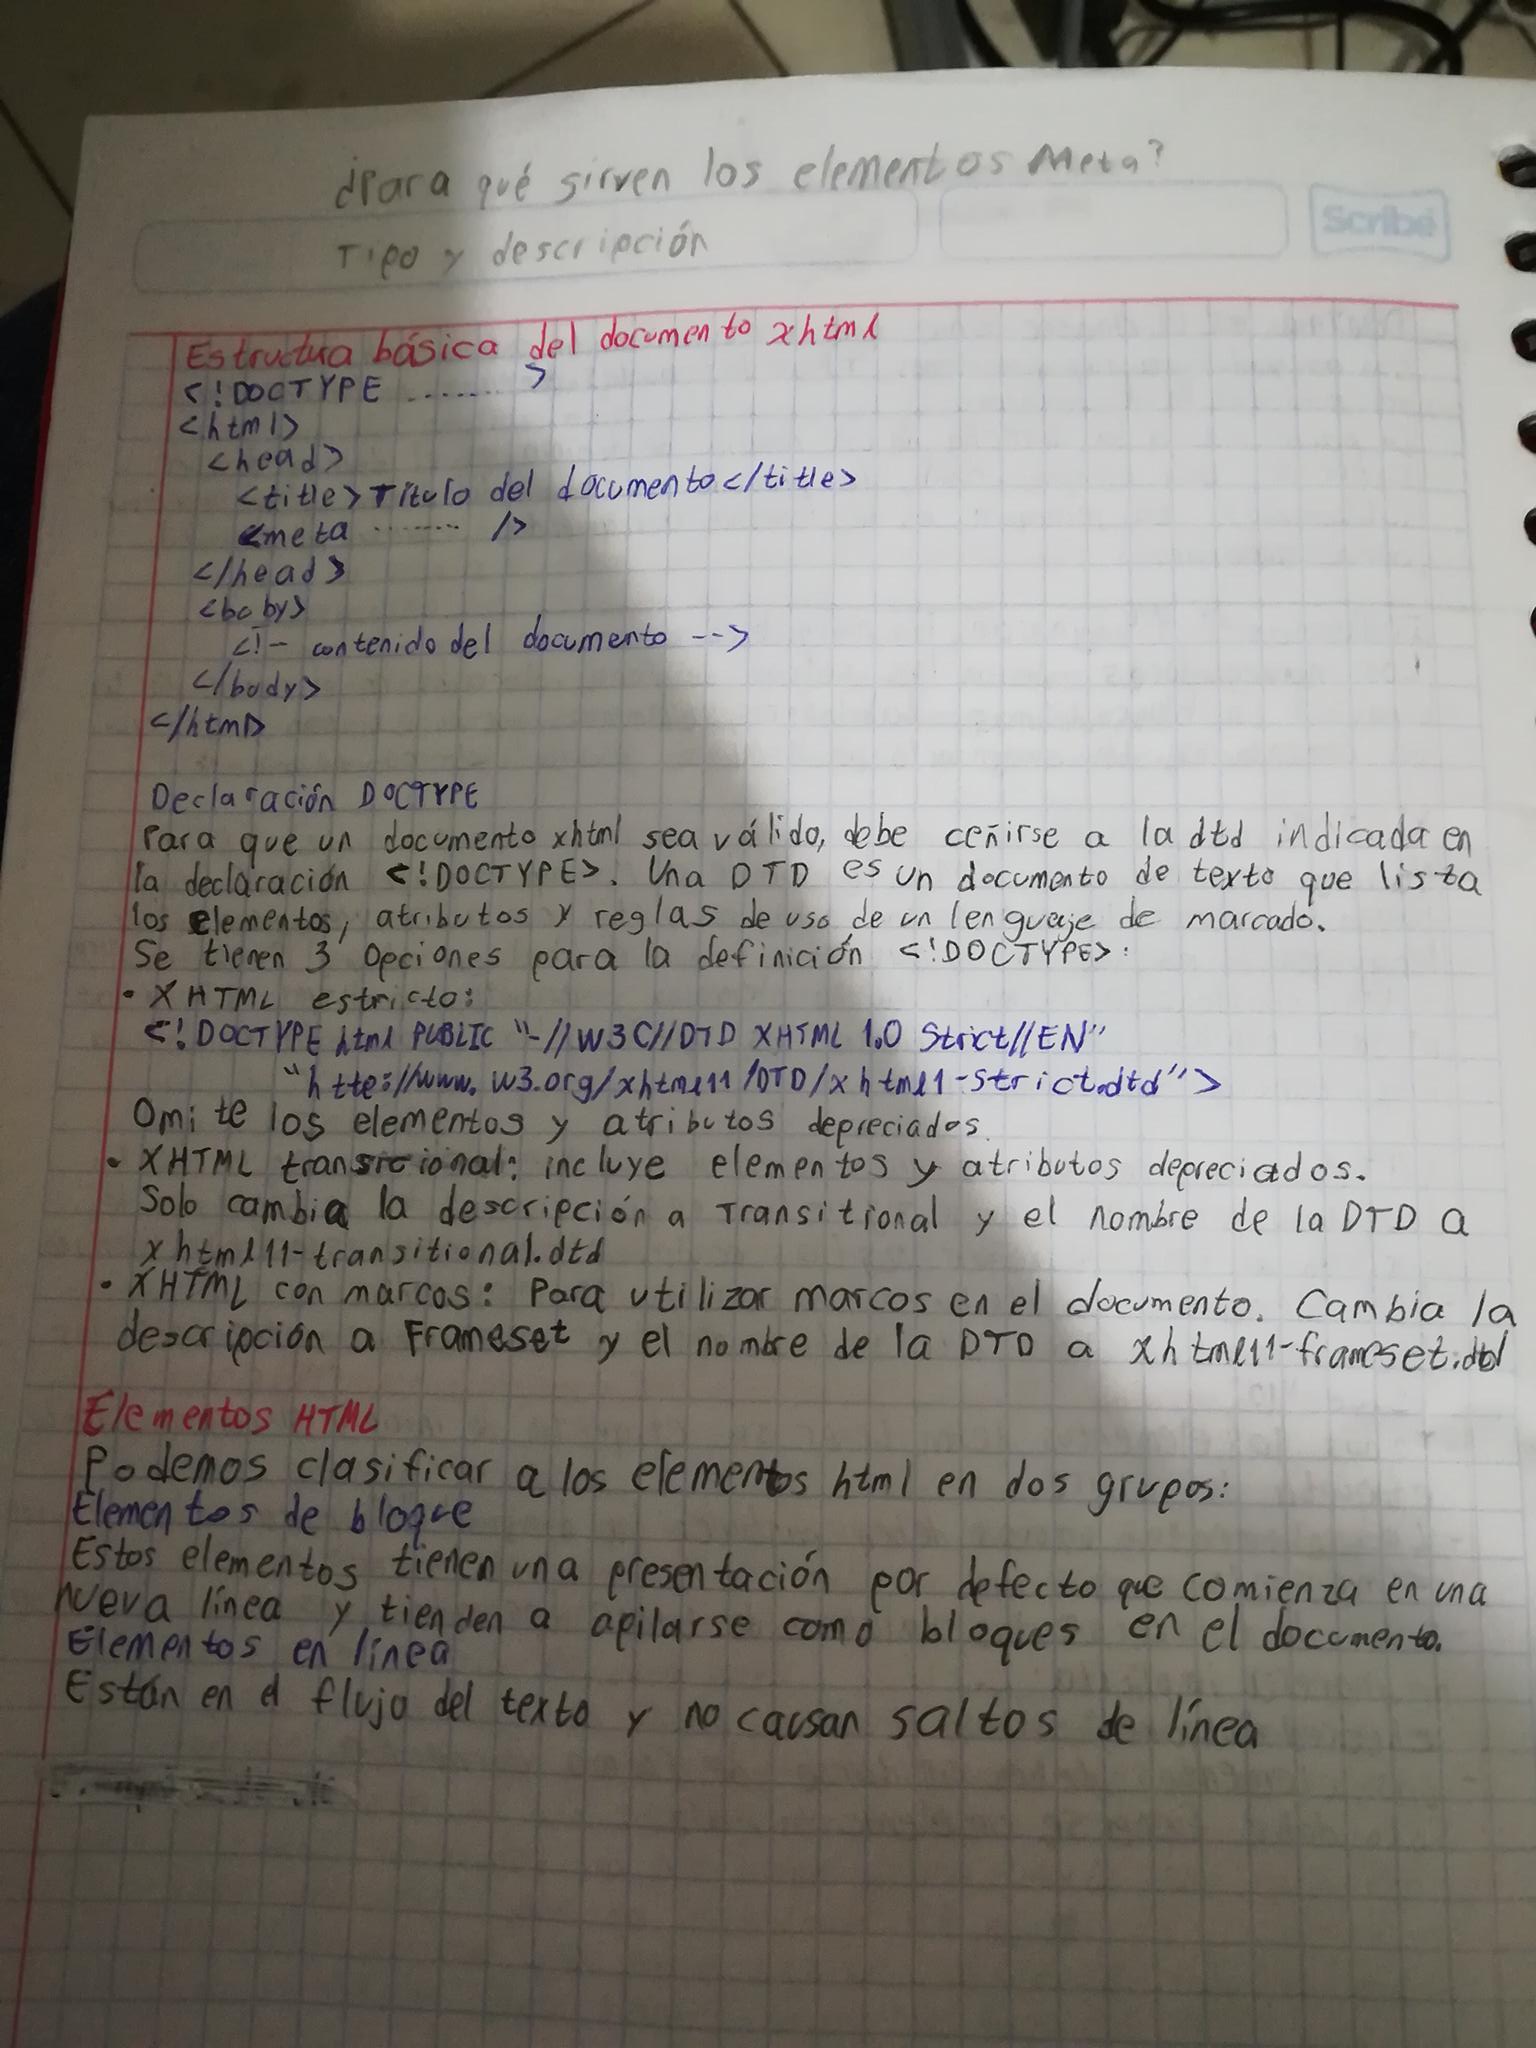 ¿Para qué sirven los elementos Meta?
Scribe
Tipo y descripción
Estructura básica del documento xhtml
<!DOCTYPE ........ >
<html>
<head>
<title>Título del documento</title>
<meta ........ />
</head>
<boby>
<!- contenido del documento -->
</body>
</html>
Declaración DOCTYPE
Para que un documento xhtml sea válido, debe ceñirse a la dtd indicada en
la declaración <!DOCTYPE>. Una DTD es un documento de texto que lista
los elementos, atributos y reglas de uso de un lenguaje de marcado.
Se tienen 3 opciones para la definición <!DOCTYPE>:
• XHTML estricto:
<!DOCTYPE html PUBLIC "-//W3C//DTD XHTML 1.0 Strict//EN"
"http://www.w3.org/xhtml11/DTD/xhtml1-strict.dtd">
Omite los elementos y atributos depreciados.
• XHTML transicional: incluye elementos y atributos depreciados.
Solo cambia la descripción a Transitional y el nombre de la DTD a
xhtml11-transitional.dtd
• XHTML con marcos: Para utilizar marcos en el documento. Cambia la
descripción a Frameset y el nombre de la DTD a xhtml11-frameset.dtd
Elementos HTML
Podemos clasificar a los elementos html en dos grupos:
Elementos de bloque
Estos elementos tienen una presentación por defecto que comienza en una
nueva línea y tienden a apilarse como bloques en el documento.
Elementos en línea
Están en el flujo del texto y no causan saltos de línea